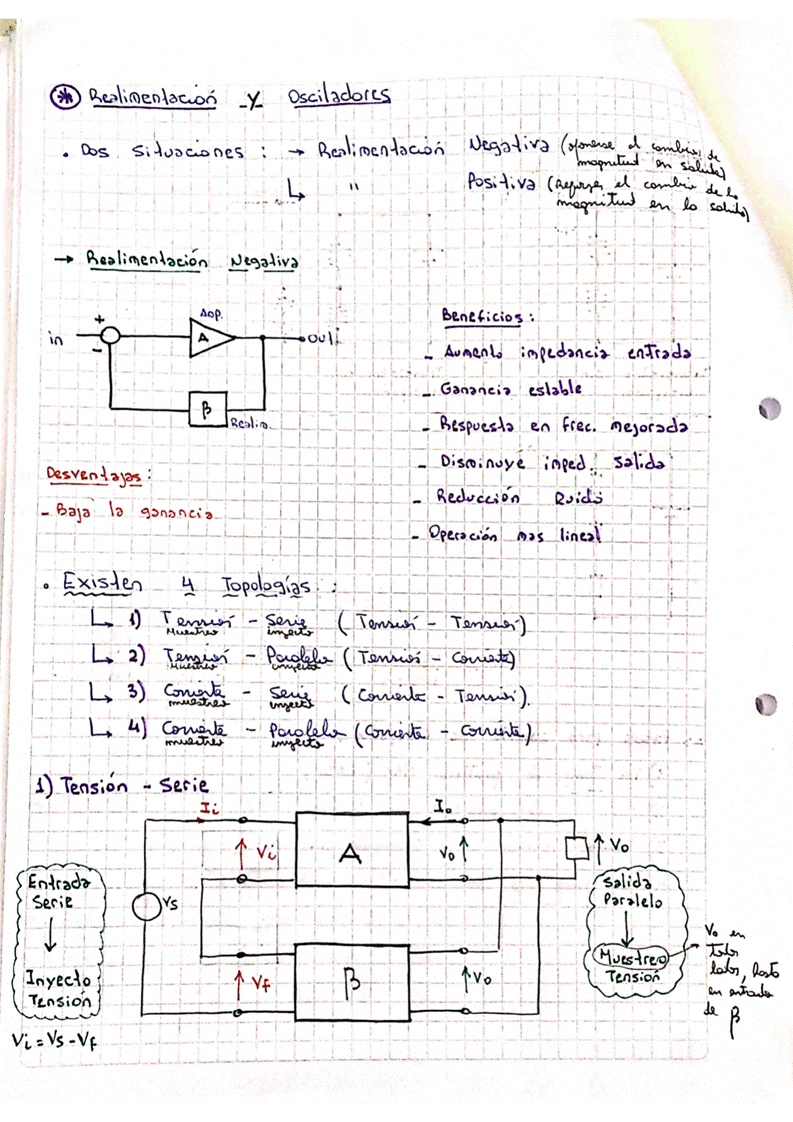 Realimentación y Osciladores
. Dos situaciones : → Realimentación Negativa (oponerse al cambio de
magnitud en salida)
↳ " Positiva (Refuerza el cambio de la
magnitud en la salida)
→ Realimentación Negativa
in + - A Aop. out
β Realim.
Beneficios :
- Aumento impedancia entrada
- Ganancia estable
- Respuesta en frec. mejorada
- Disminuye imped. salida
- Reducción Ruido
- Operación mas lineal
Desventajas :
- Baja la ganancia
. Existen 4 Topologías :
↳ 1) Tensión - Serie (Tensión - Tensión)
Muestreo inyecto
↳ 2) Tensión - Paralelo (Tensión - Corriente)
Muestreo inyecto
↳ 3) Corriente - Serie (Corriente - Tensión).
muestreo inyecto
↳ 4) Corriente - Paralelo (Corriente - Corriente)
muestreo inyecto
1) Tensión - Serie
Ii Io
Vi A Vo Vo
Vs
Vf β Vo
Entrada
Serie
↓
Inyecto
Tensión
Vi = Vs - Vf
Salida
Paralelo
↓
Muestreo
Tensión
Vo en
todos
lados,
en entrada
de β